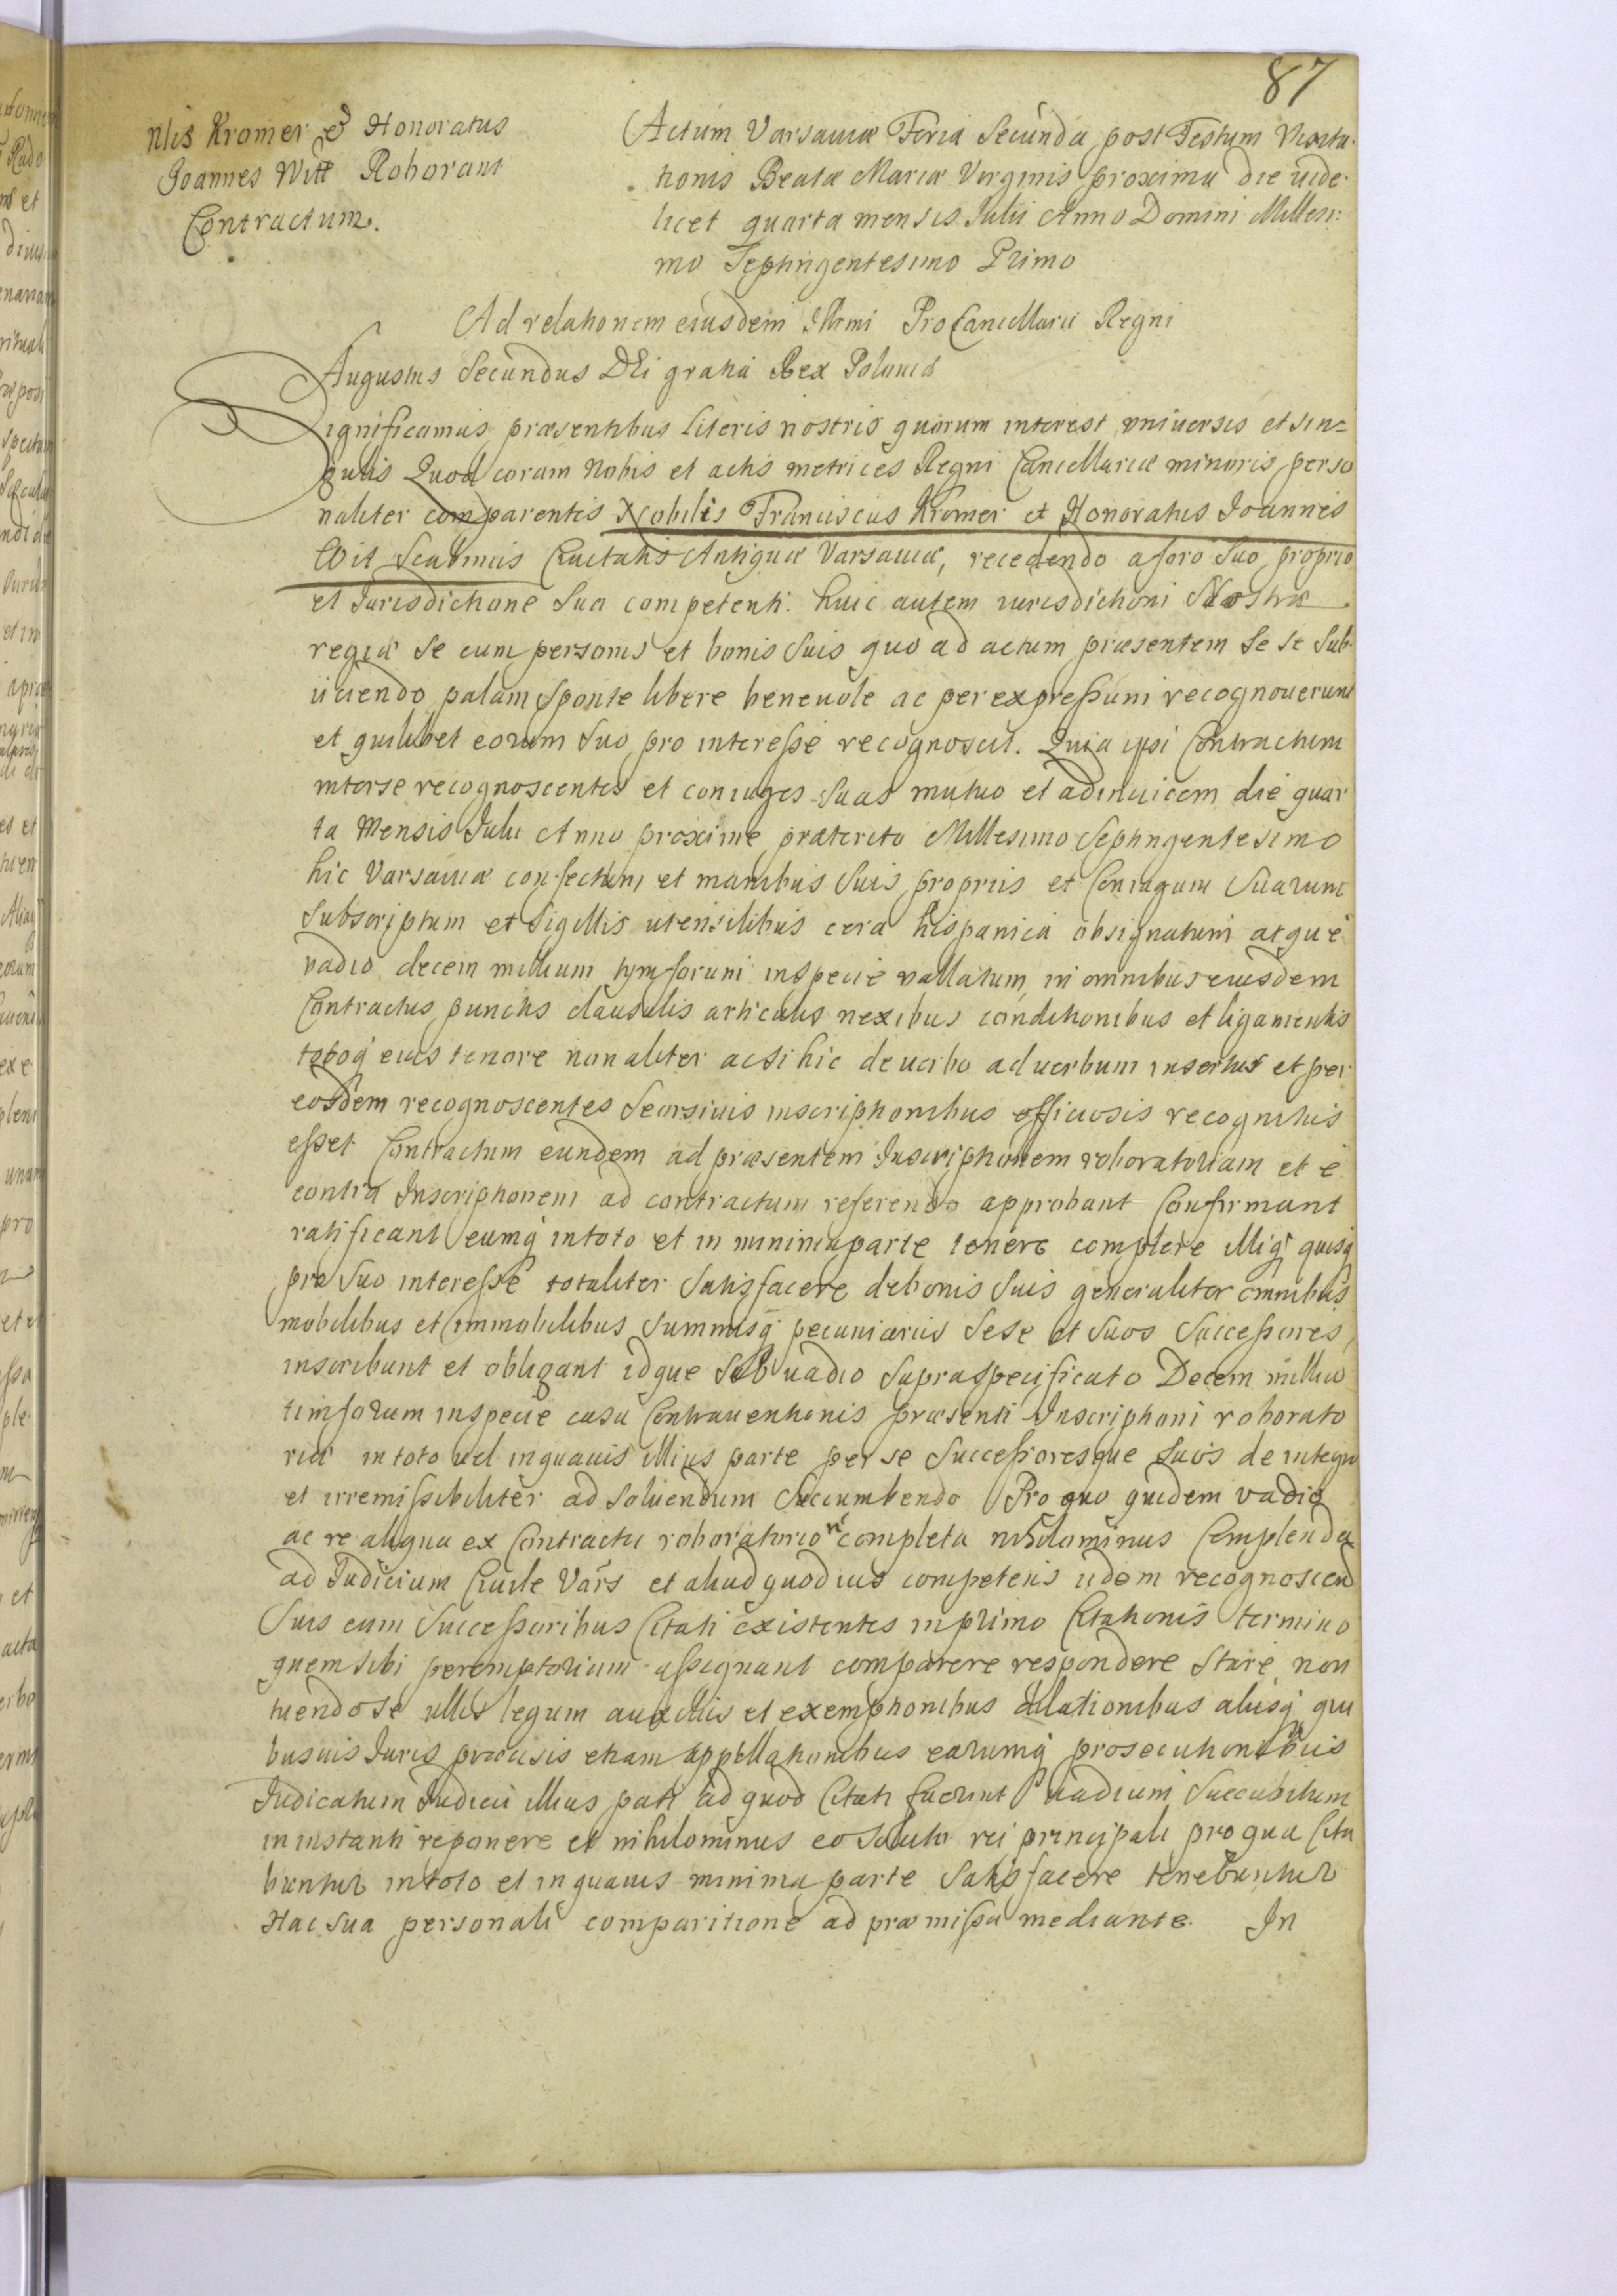 87
Nlis Kromer et Honoratus
Joannes Witt Roborant
Contractum.
Actum Varsauiæ Feria Secunda post Festum Visita-
tionis Beatæ Mariæ Virginis proxima die vide-
licet quarta mensis Julii Anno Domini Millesi-
mo Septingentesimo Primo
Ad relationem eiusdem Illrmi ProCancellarii Regni
Augustus Secundus DEi gratia Rex Poloniæ
Significamus præsentibus literis nostris quorum interest universis et sin=
gulis Quod coram Nobis et actis metrices Regni Cancellariæ minoris perso
naliter comparentis Nobilis Franciscus Kromer et Honoratus Joannes
Wit Scabinus Ciuitatis Antiquæ Varsauiæ, recedendo a foro suo proprio
et Jurisdictione sua competenti. huic autem iurisdictioni Nostræ
regiæ se cum personis et bonis suis quo ad actum præsentem se se sub-
iiciendo palam sponte libere beneuole ac per expressum recognouerunt
et quilibet eorum suo pro interesse recognoscit. Quia ipsi Contractum
inter se recognoscentes et coniuges suas mutuo et adinuicem die quar
ta Mensis Julii Anno proxime præterito Millesimo Septingentesimo
hic Varsauiæ confectum et manibus suis propriis et Coniugum suarum
subscriptum et sigillis utensilibus cera hispanica obsignatum atque
vadio decem millium tymforum in specie vallatum, in omnibus eiusdem
Contractus punctis clausulis articulis nexibus conditionibus et ligamentis
totoq eius tenore non aliter acsi hic de uerbo ad uerbum insertus et per
eosdem recognoscentes seorsiuis inscriptionibus officiosis recognitus
esset Contractum eundem ad præsentem Inscriptionem roboratoriam et e
contra Inscriptionem ad contractum referendo approbant Confirmant
ratificant eumq in toto et in minima parte tenere complere illiq quisq
pro suo interesse totaliter satisfacere de bonis suis generaliter omnibus
mobilibus et immobilibus summisq pecuniariis sese et suos successores
inscribunt et obligant idque sub vadio supraspecificato Decem milliu
timforum in specie casu Contrauentionis præsenti Inscriptioni roborato
riæ in toto uel in quauis illius parte per se successoresque suos de integro
et irremissibiliter ad soluendum succumbendo Pro quo quidem vadio
ac re aliqua ex Contractu roboratorio n completa nihilominus Complenda
ad Judicium Ciuile Vars et aliud quoduis competens iidem recognoscen
suis cum successoribus Citati existentes in primo Citationis termino
quem sibi peremptorium assignant comparere respondere stare non
tuendo se ullis legum auxiliis et exemptionibus dilationibus aliisq qui
busuis Juris præcisis etiam appellationibus earumq prosecutionibus
Judicatum Judicii illius pati ad quod Citati fuerint vadium succubitum
in instanti reponere et nihilominus eo soluto rei principali pro qua Cita
buntur in toto et in quauis minima parte satisfacere tenebuntur
Hac sua personali comparitione ad præmissa mediante. In